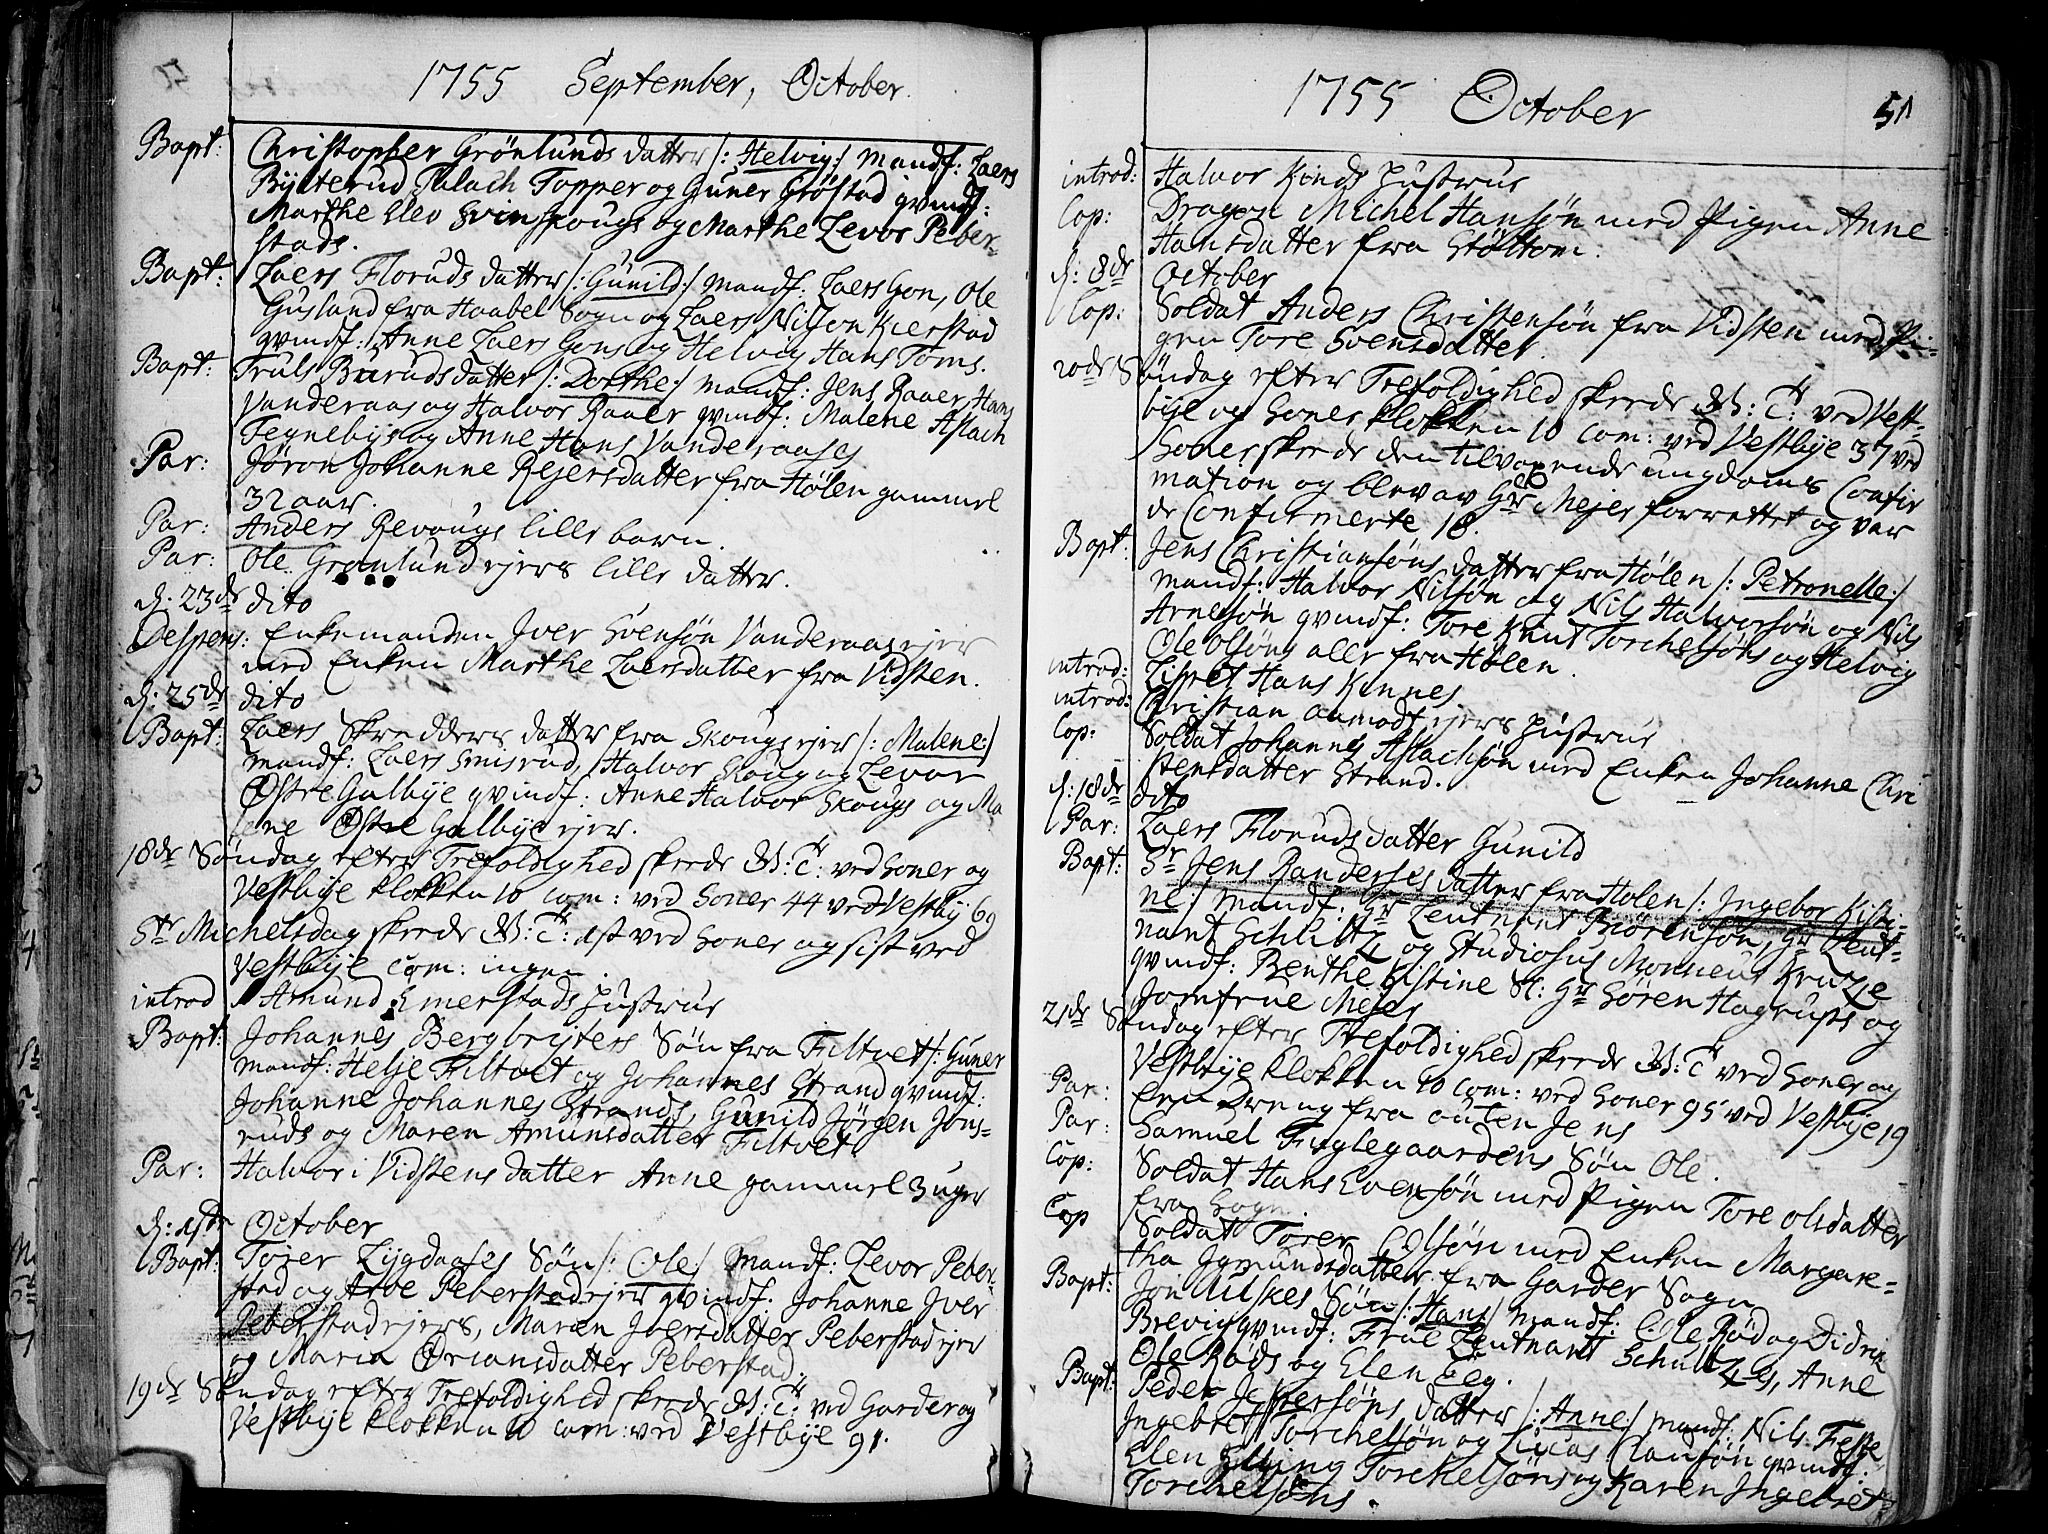 1755 September, October.
Bapt: Christopher Grönlunds datter /: Helvig:/ mandf: Laers
Bijlterud Palach Topper og Guner Gröstad qvindf:
Marthe Elev Svinskougs og Marthe Levor Peber-
stads.
Bapt: Laers Floruds datter /: Gunild:/ mandf: Laers Gon, Ole
Gusland fra Haabel Sogn og Laers Nilson Kierstad
qvindf: Anne Laers Gons og Helvig Hans Toms.
Bapt: Truls Bruruds datter /: Dorthe:/ mandf: Jens Raaer, Hans
Vanderaas og Halvor Raaer qvindf: Malene Aslach
Tegnebijs og Anne Hans Vanderaases
Par: Jöron Johanne Rejersdatter fra Hölen gammel
32 aar.
Par: Anders Revougs lille barn.
Par: Ole Grönlund ejers lille datter.
d: 23de dito
Despens: Enkemanden Iver Svensön Vanderaas ejer
med Enken Marthe Laersdatter fra Vidsten.
d: 25de dito
Bapt: Laers Skredders datter fra Skougs ejer /: Malene:/
mandf: Laers Smisrud, Halvor Skoug og Levor
Östre Galbije qvindf: Anne Halvor Skougs og Ma
lene Östre Galbije ejer.
18de Söndag efter Trefoldighed skrede G: T: ved Soner og
Vestbije klokken 10 com: ved Soner 44 ved Vestbij 69
Str Michelsdag skrede G: T: 1st ved Soner og sist ved
Vestbije com: ingen.
introd Amund Emerstads hustrue
Bapt: Johannes Bergbrijters Sön fra Filtvet /: Guner
mandf: Helje Filtvet og Johannes Strand qvindf:
Johanne Johannes Strands, Gunild Jörgen Jons-
ruds og Maren Amunsdatter Filtvet
Par: Halvor i Vidstens datter Anne gammel 3 uger
d: 1ste October
Bapt: Torer Lijgdaases Sön /: Ole:/ mandf: Levor Peber-
stad og Arve Peberstad ejer qvindf: Johanne Iver
Peberstad ejers, Maren Iversdatter Peberstad ejer
og Maria Örjansdatter Peberstad.
19de Söndag efter Trefoldighed skrede G: T: ved Garder og
Vestbije klokken 10 com: ved Vestbije 91.
1755 October 51
introd: Halvor Kinds hustrue
Cop: Dragon Michel Hansön med Pigen Anne
Hansdatter fra Stöltom.
d: 8de October
Cop: Soldat Anders Christensön fra Vidsten med Pi-
gen Tore Svensdatter.
20de Söndag efter Trefoldighed skrede G: T: ved Vest-
bije og Soner klokken 10 com: ved Vestbije 37 ved
Soner skrede den tilvoxende ungdoms Confir
mation og blev av Hr Mejer forrettet og var
de Confirmerte 18.
Bapt: Jens Christiansöns datter fra Hölen /: Petronelle:/
mandf: Halvor Nilsön og Nils Halvorsön og Nils
Arnesön qvindf: Tore Knut Torchelsöns og Helvig
Ole Olsöns alle fra Hölen.
introd: Lispet Hans Kinnes
introd: Christian anmodt ejers hustrue
Cop: Soldat Johannes Aslachsön med Enken Johanne Chri
stensdatter Strand.
d: 18de dito
Par: Laers Floruds datter Gunild
Bapt: Sr Jens Randerses datter fra Hölen /: Ingebor Kisti-
ne:/ mandf: Hr Leutnant Biörensön, Hr Leut-
nant Schlütz og Studiosus Monsieur Kruze
qvindf: Benthe Kistine Sl: Hr Sören Hagrups og
Jomfrue Mejer
21de Söndag efter Trefoldighed skrede G: T ved Soner og
Vestbije klokken 10 com: ved Soner 95 ved Vestbije 19
Par: Een dreng fra outen Jens
Par: Samuel Fuglegaardens Sön Ole.
Cop: Soldat Hans Evensön med Pigen Tore Olsdatter
fra Sogn
Cop Soldat Torer Olsön med Enken Margare-
tha Igmundsdatter fra Garder Sogn
Bapt: Jon Skes Sön /: Hans:/ mandf: Ole Röd og Didrik
Brevig qvindf: Frue Leutnant Schultzes, Anne
Ole Röds og Elen Eeg.
Bapt: Peder Jespersöns datter /: Anne:/ mandf. Nils Feste
Ingebret Torchelsön og Lucas Clausön qvindf:
Elen Elling Torchelsöns og Karen Ingebret
Torchelsöns.